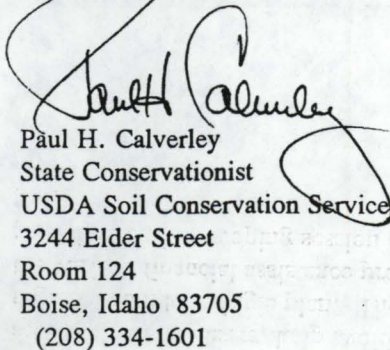 Paul H Calverley
Paul H. Calverley
State Conservationist
USDA Soil Conservation Service
3244 Elder Street
Room 124
Boise, Idaho 83705
(208) 334-1601